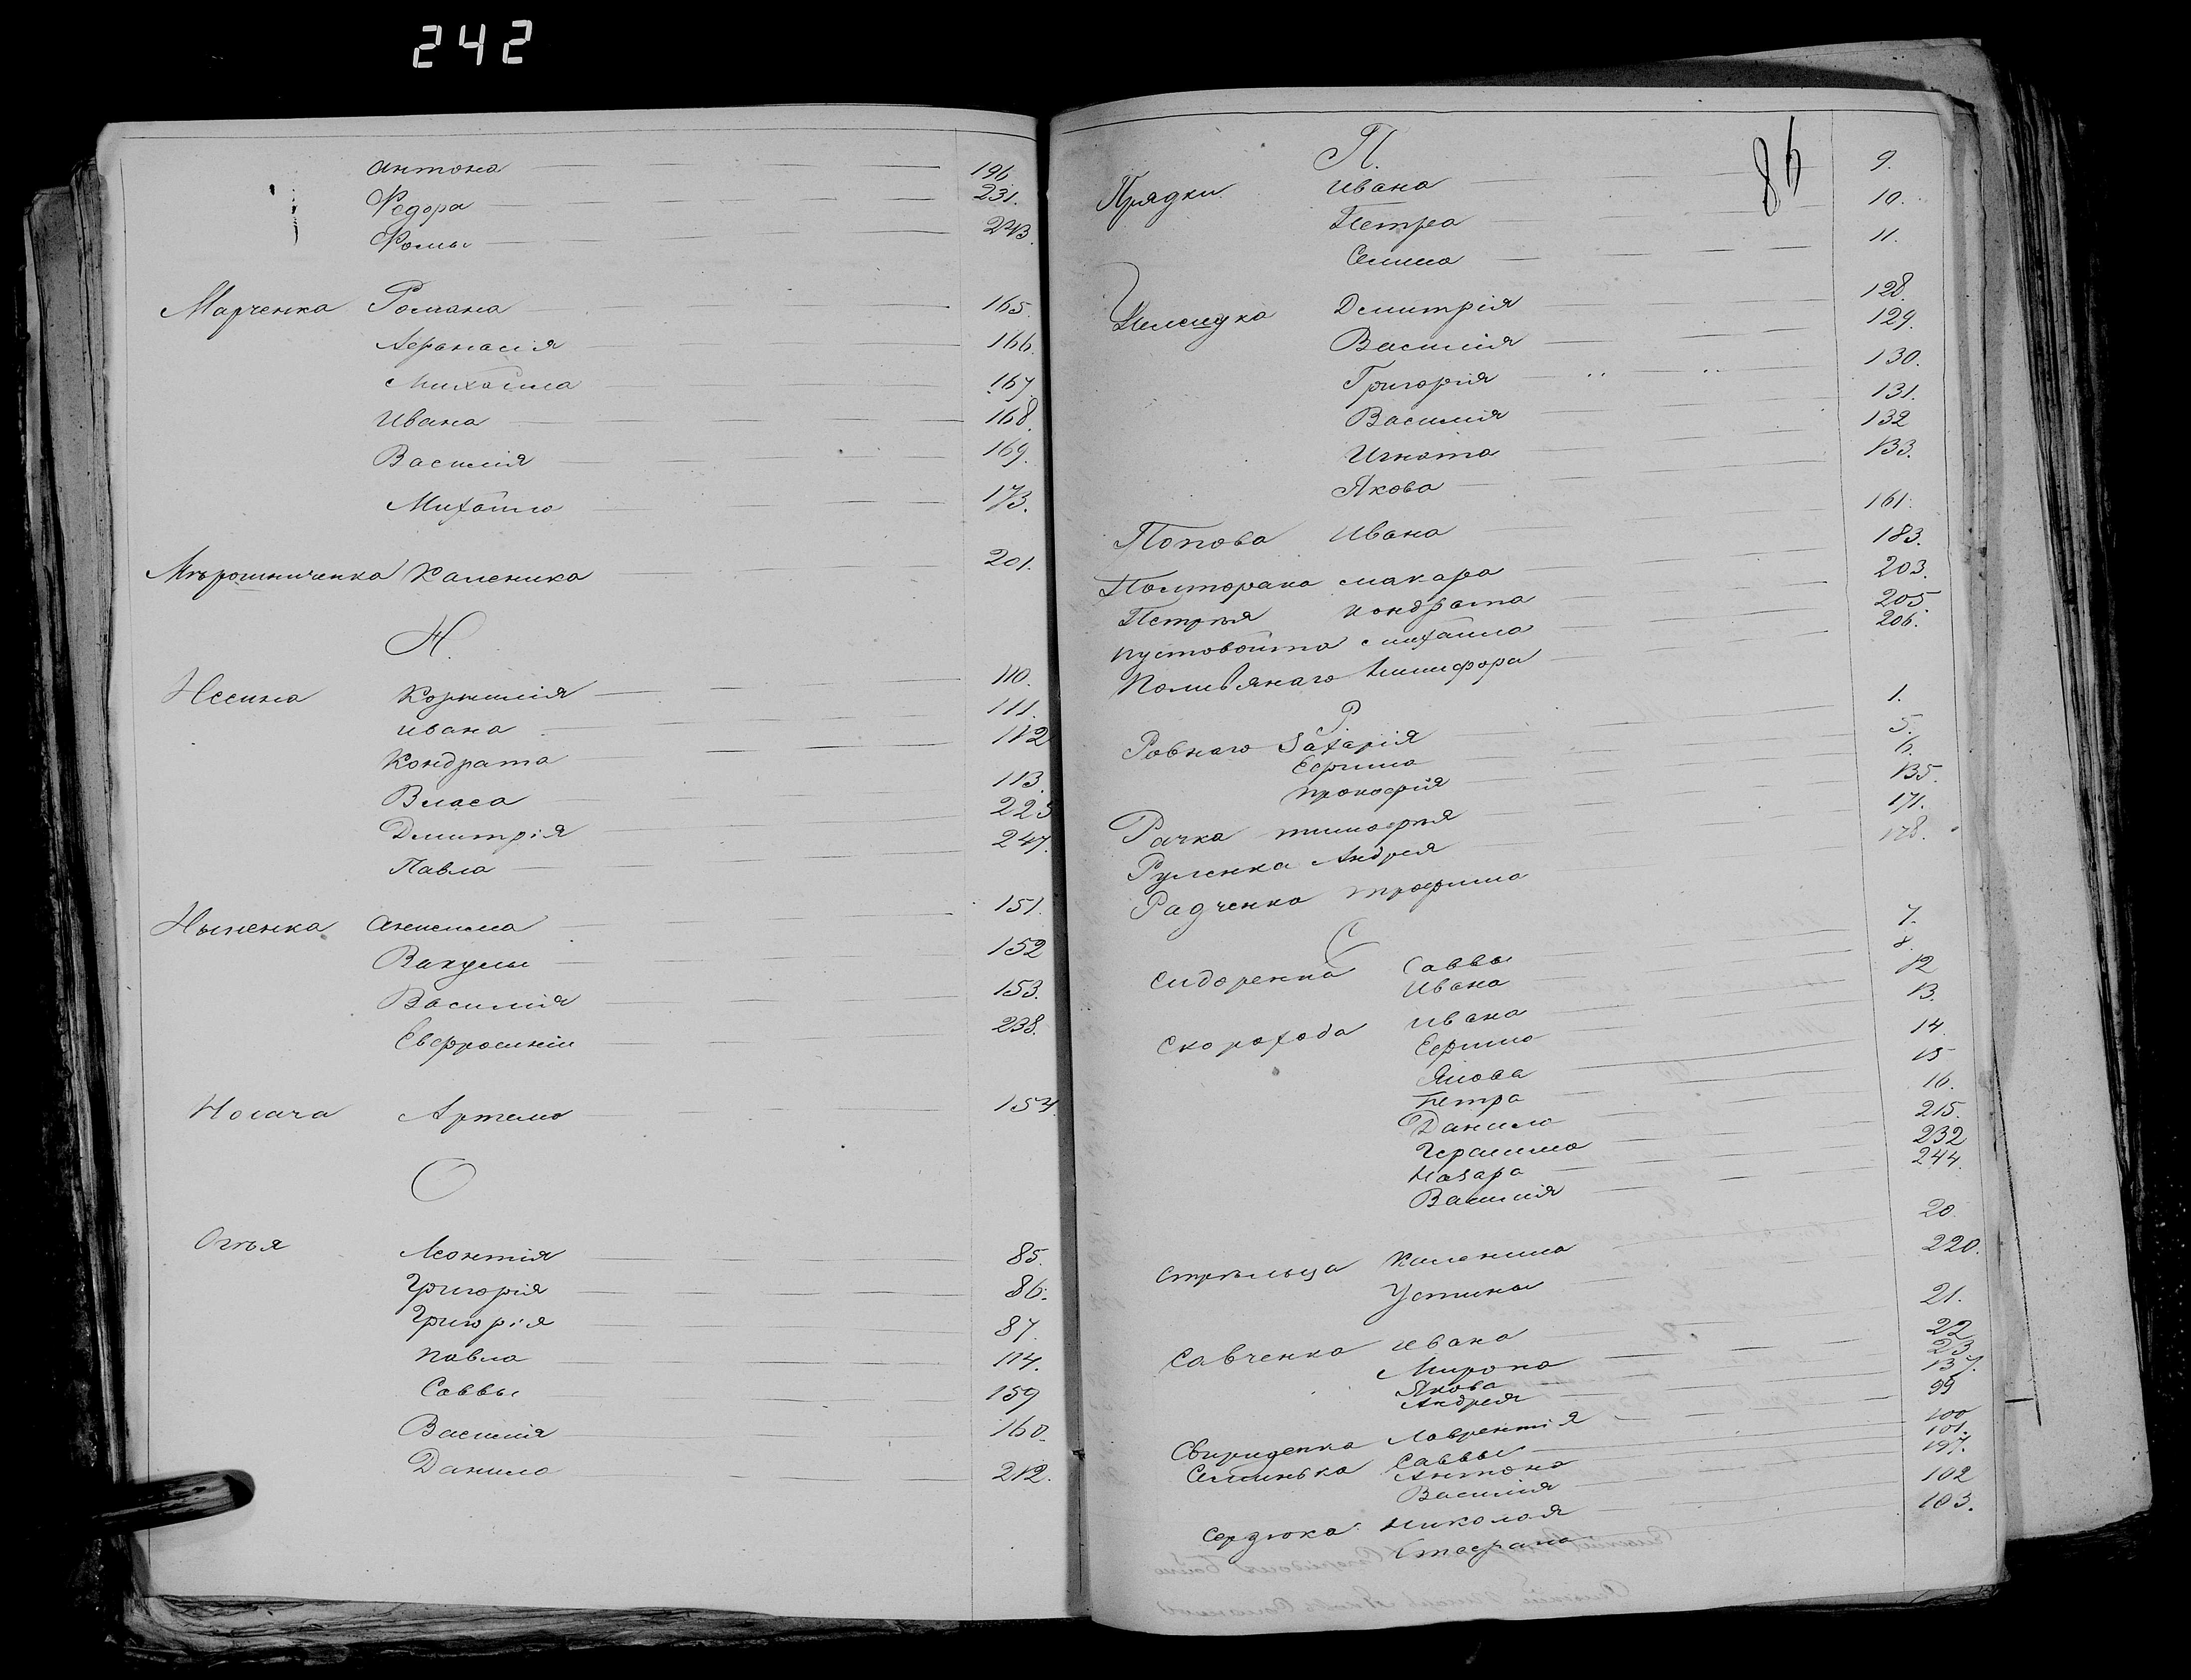 242
Антона — 196
Ѳедора — 231.
Ѳомы — 243.
Марченка Романа — 165.
Афанасія — 166.
Михайла — 167.
Ивана — 168.
Василія — 169.
Михайла — 173.
Мѣрошниченка Каленика — 201.
Н.
Несина Корнилія — 110.
Ивана — 111.
Кондрата — 112
Власа — 113.
Дмитрія — 225
Павла — 247.
Анисима — 151.
Вакулы — 152
Василія — 153.
Евфросиніи — 238.
Носача Артема — 154.
О
Огнѣя Леонтія — 85.
Григорія — 86.
Григорія — 87.
Павла — 114.
Саввы — 159
Василія — 160.
Данила — 212.
86
П.
Прядки Ивана — 9.
Петра — 10.
Семена — 11.
Дмитрія — 128.
Василія — 129.
Григорія — 130.
Василія — 131.
Игната — 132
Якова — 133.
Попова Ивана — 161.
Полторака Макара — 183.
Кондрата — 203.
Пустовойта Михайла — 205.
Поливянаго Никифора — 206.
Р.
Ровнаго Захарія — 1.
Ефима — 5.
Прокофія — 6.
Рачка Тимофѣя — 135.
Руленка Андрея — 171.
Радченка Трофима — 178.
С
Сидоренка Саввы — 7.
Ивана — 8.
Скорохода Ивана — 12
Ефима — 13.
Якова — 14.
Петра — 15
Данила — 16.
Герасима — 215.
Назара — 232
Василія — 244.
Стрѣльца Каленика — 20
Устина — 220.
Савченка Ивана — 21.
Мирона — 22
Якова — 23
Андрея — 137.
Свириденка Лаврентія — 99
Саввы — 100
Антона — 101.
Василія — 197.
Сердюка Николая — 102
Стефана — 103.